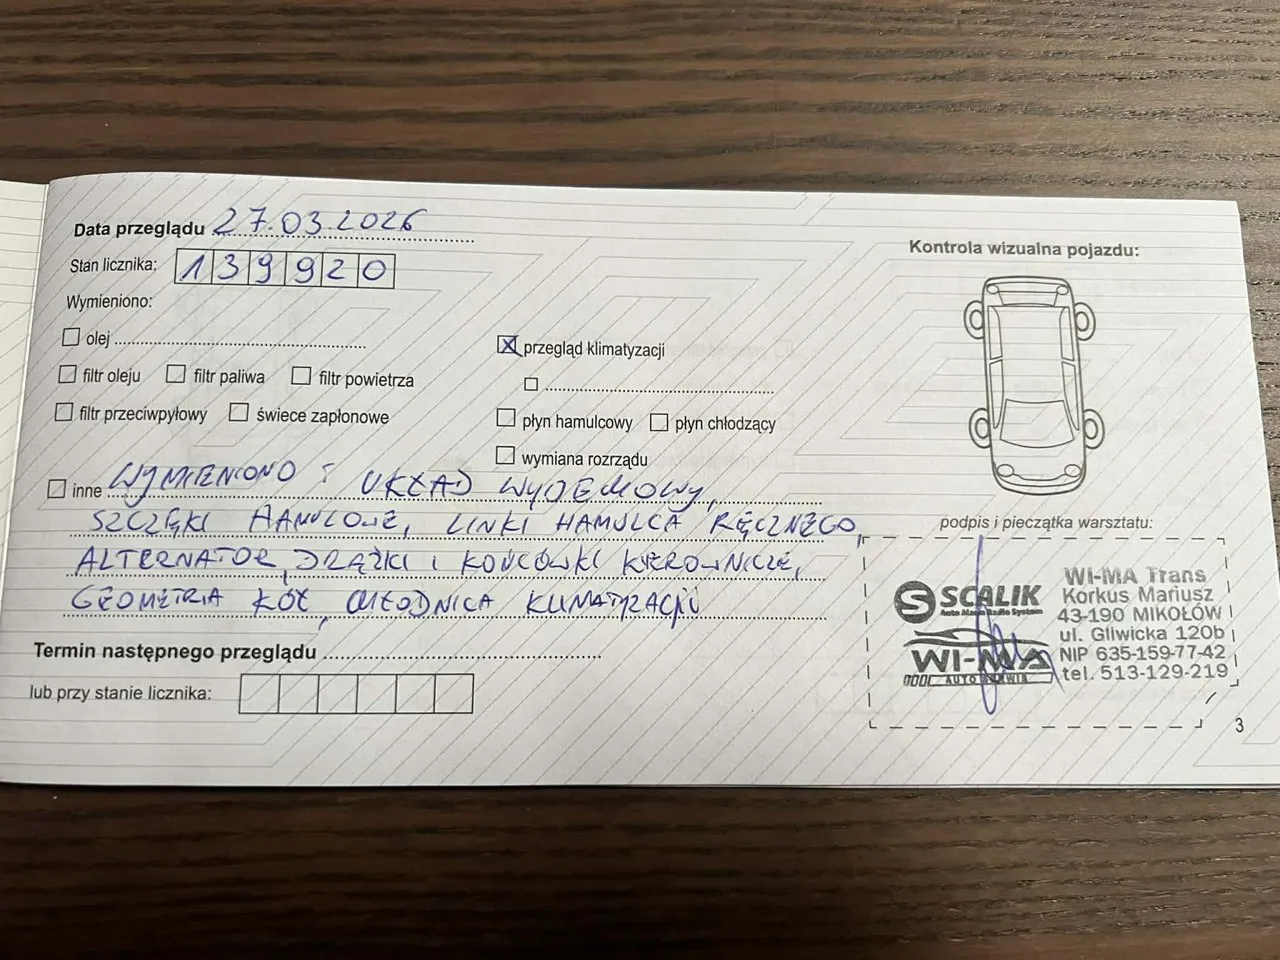 Data przeglądu 27.03.2026
Stan licznika: 139920
Wymieniono:
olej
filtr oleju filtr paliwa filtr powietrza
filtr przeciwpyłowy świece zapłonowe
przegląd klimatyzacji
płyn hamulcowy płyn chłodzący
wymiana rozrządu
inne WYMIENIONO : UKŁAD WYDEMOWY,
SZCZĘKI HAMULOWE, LINKI HAMULCA RĘCZNEGO,
ALTERNATOR, DRĄŻKI I KOŃCÓWKI KIEROWNICZE,
GEOMETRIA KÓŁ, CHŁODNICA KLIMATYZACJI
Termin następnego przeglądu
lub przy stanie licznika:
Kontrola wizualna pojazdu:
podpis i pieczątka warsztatu:
SCALIK
Auto Alarm Radio System
WI-MA
AUTO SERWIS
WI-MA Trans
Korkus Mariusz
43-190 MIKOŁÓW
ul. Gliwicka 120b
NIP 635-159-77-42
tel. 513-129-219
3